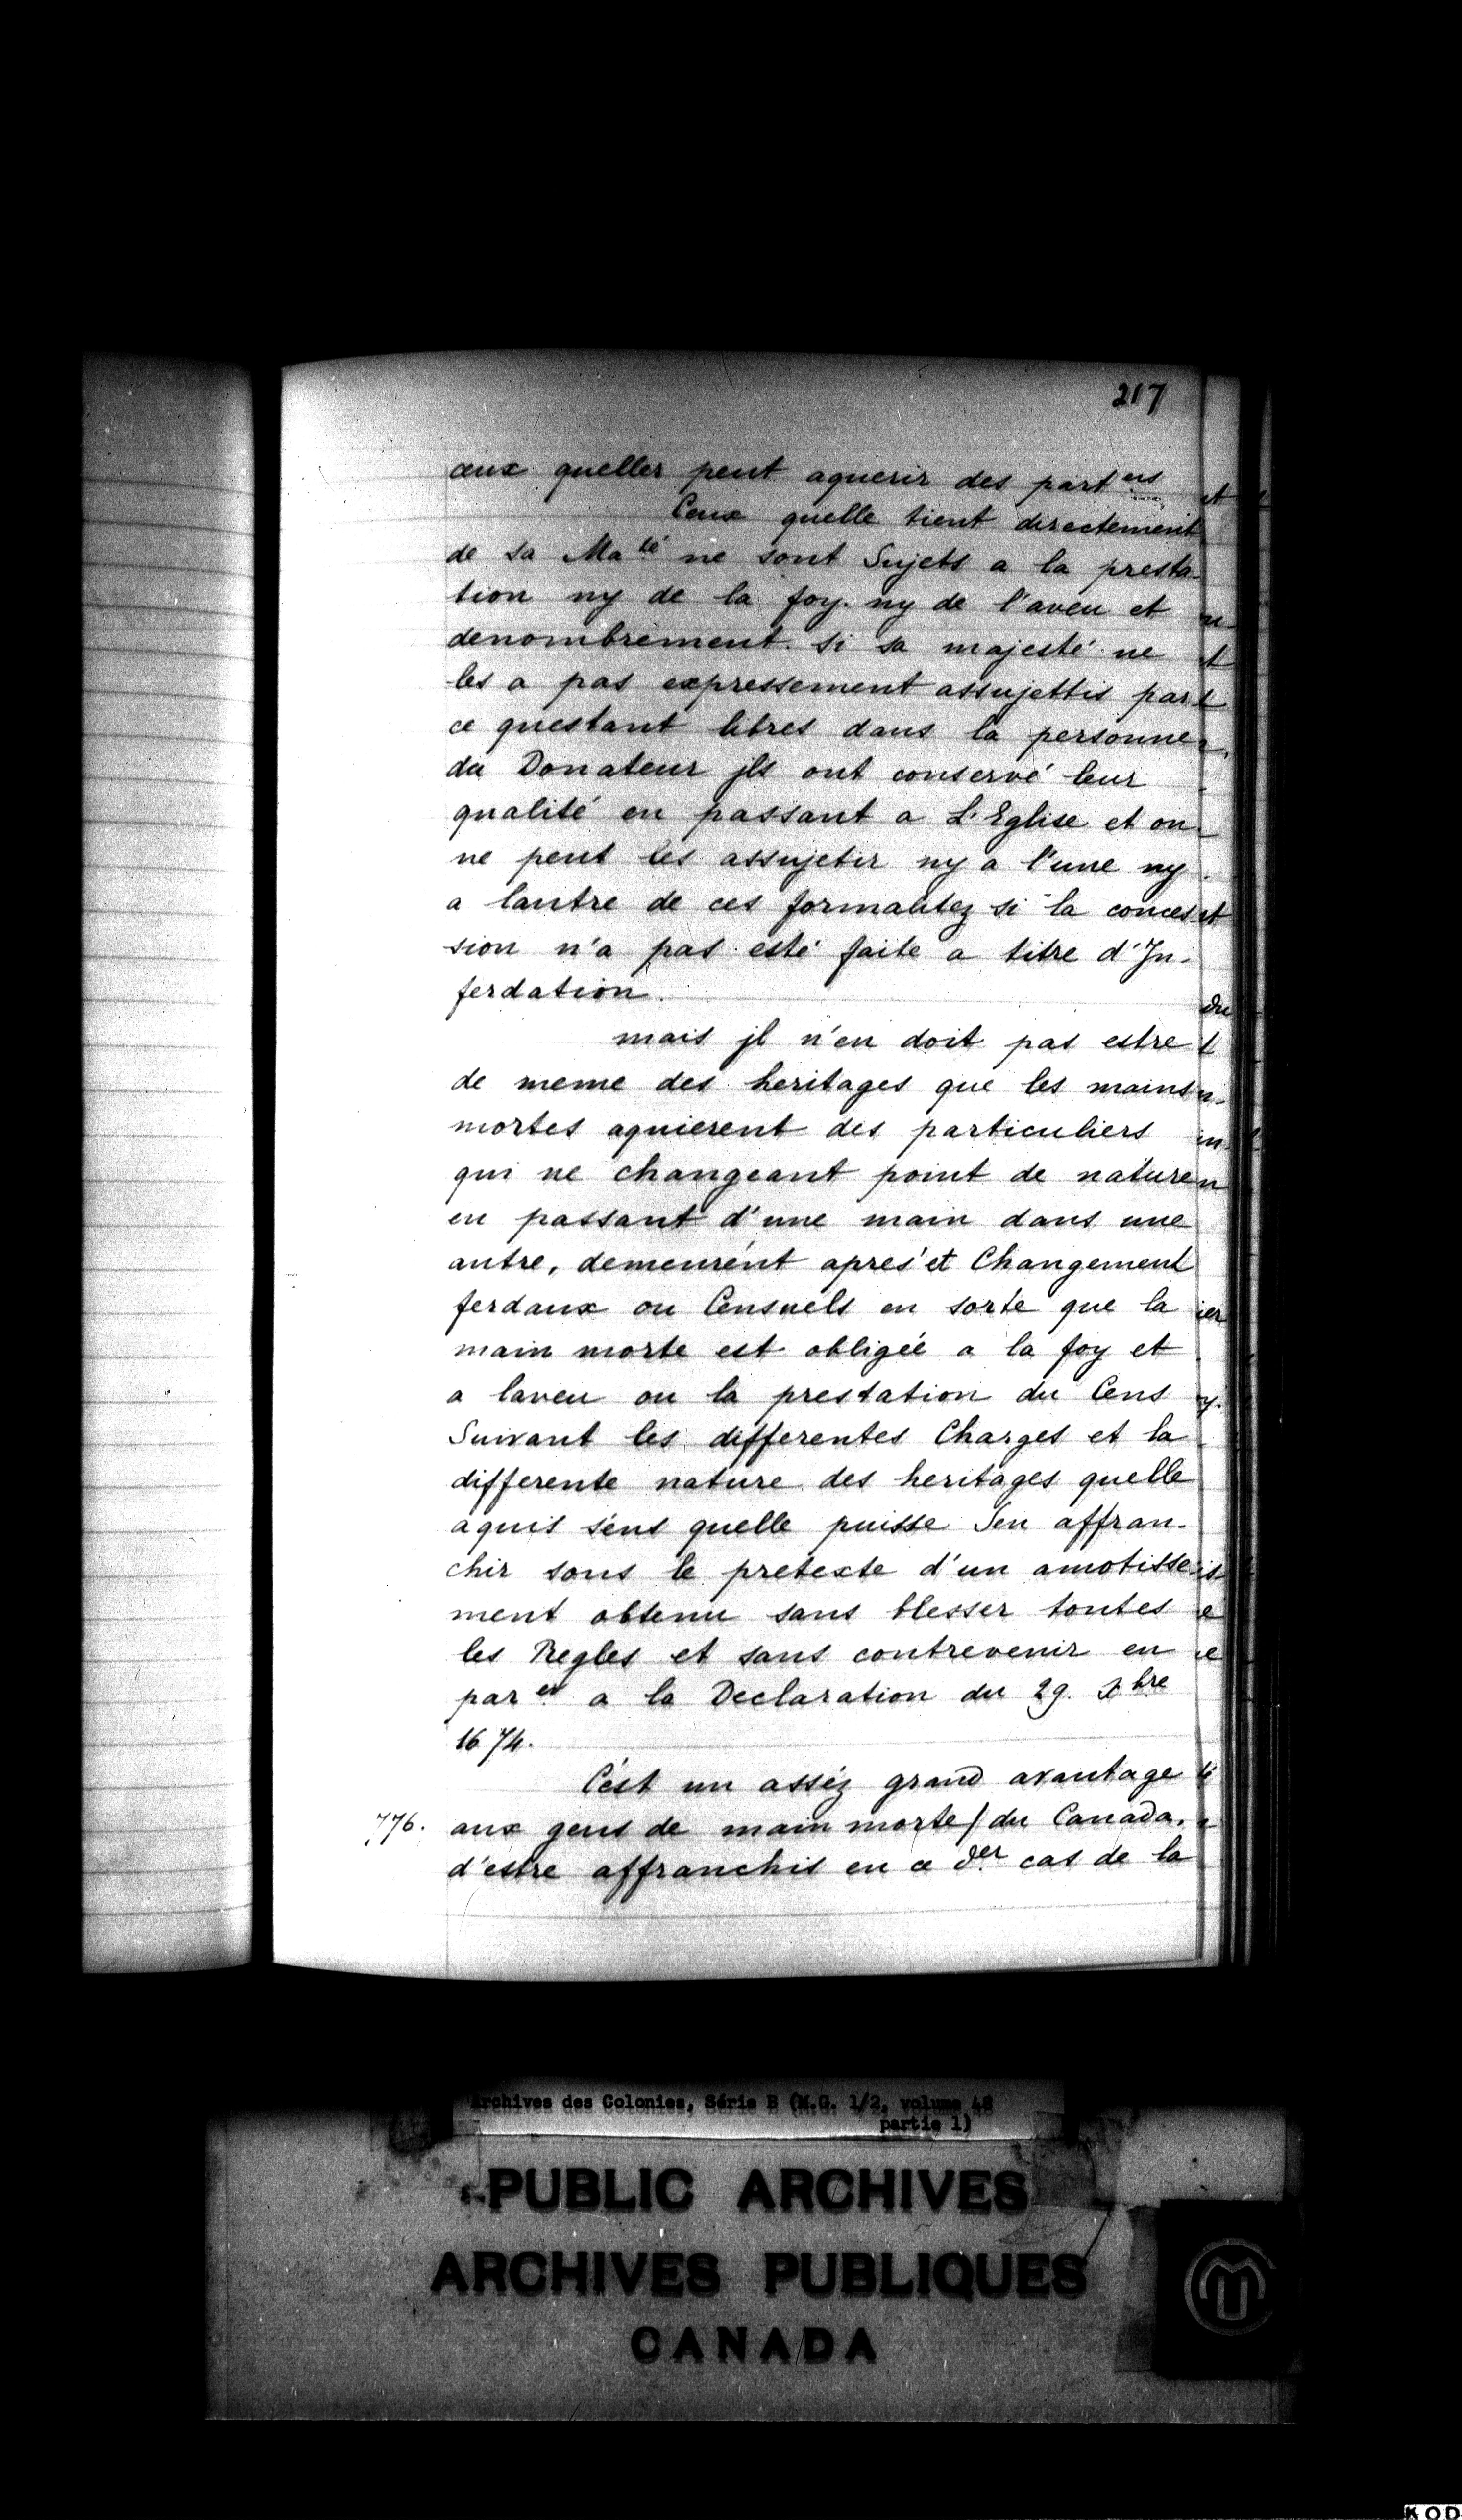 217
ceux quelles peut aquerir des part ers
Ceux quelle tient directement
de sa Ma té ne sont Sujets a la presta-
tion ny de la foy. ny de l'aveu et
denombrement. si sa majesté ne
les a pas expressement assujettis par
ce questant libres dans la personne
du Donateur jls ont conservé leur
qualité en passant a L'Eglise et on
ne peut les assujetir ny a l'une ny
a lautre de ces formalitez si la conces
sion n'a pas esté faite a titre d'In-
ferdation.
mais jl n'en doit pas estre
de meme des heritages que les mains
mortes aquierent des particuliers
qui ne changeant point de nature
en passant d'une main dans une
autre, demeurent apres et Changement
ferdaux ou Censuels en sorte que la
main morte est obligée a la foy et
a laveu ou la prestation du Cens
Suivant les differentes Charges et la
differente nature des heritages quelle
aquis sens quelle puisse Sen affran-
chir sous le pretexte d'un amotisse
ment obtenu sans blesser toutes
les Regles et sans contrevenir en
par er a la Declaration du 29. xbre
1674.
C'est un asséz grand avantage
776. aux gens de main morte/du Canada.
d'estre affranchis en ce der cas de la
Archives des Colonies, Série B (M.G. 1/2, volume 48
partie 1)
PUBLIC ARCHIVES
ARCHIVES PUBLIQUES
CANADA
KOD